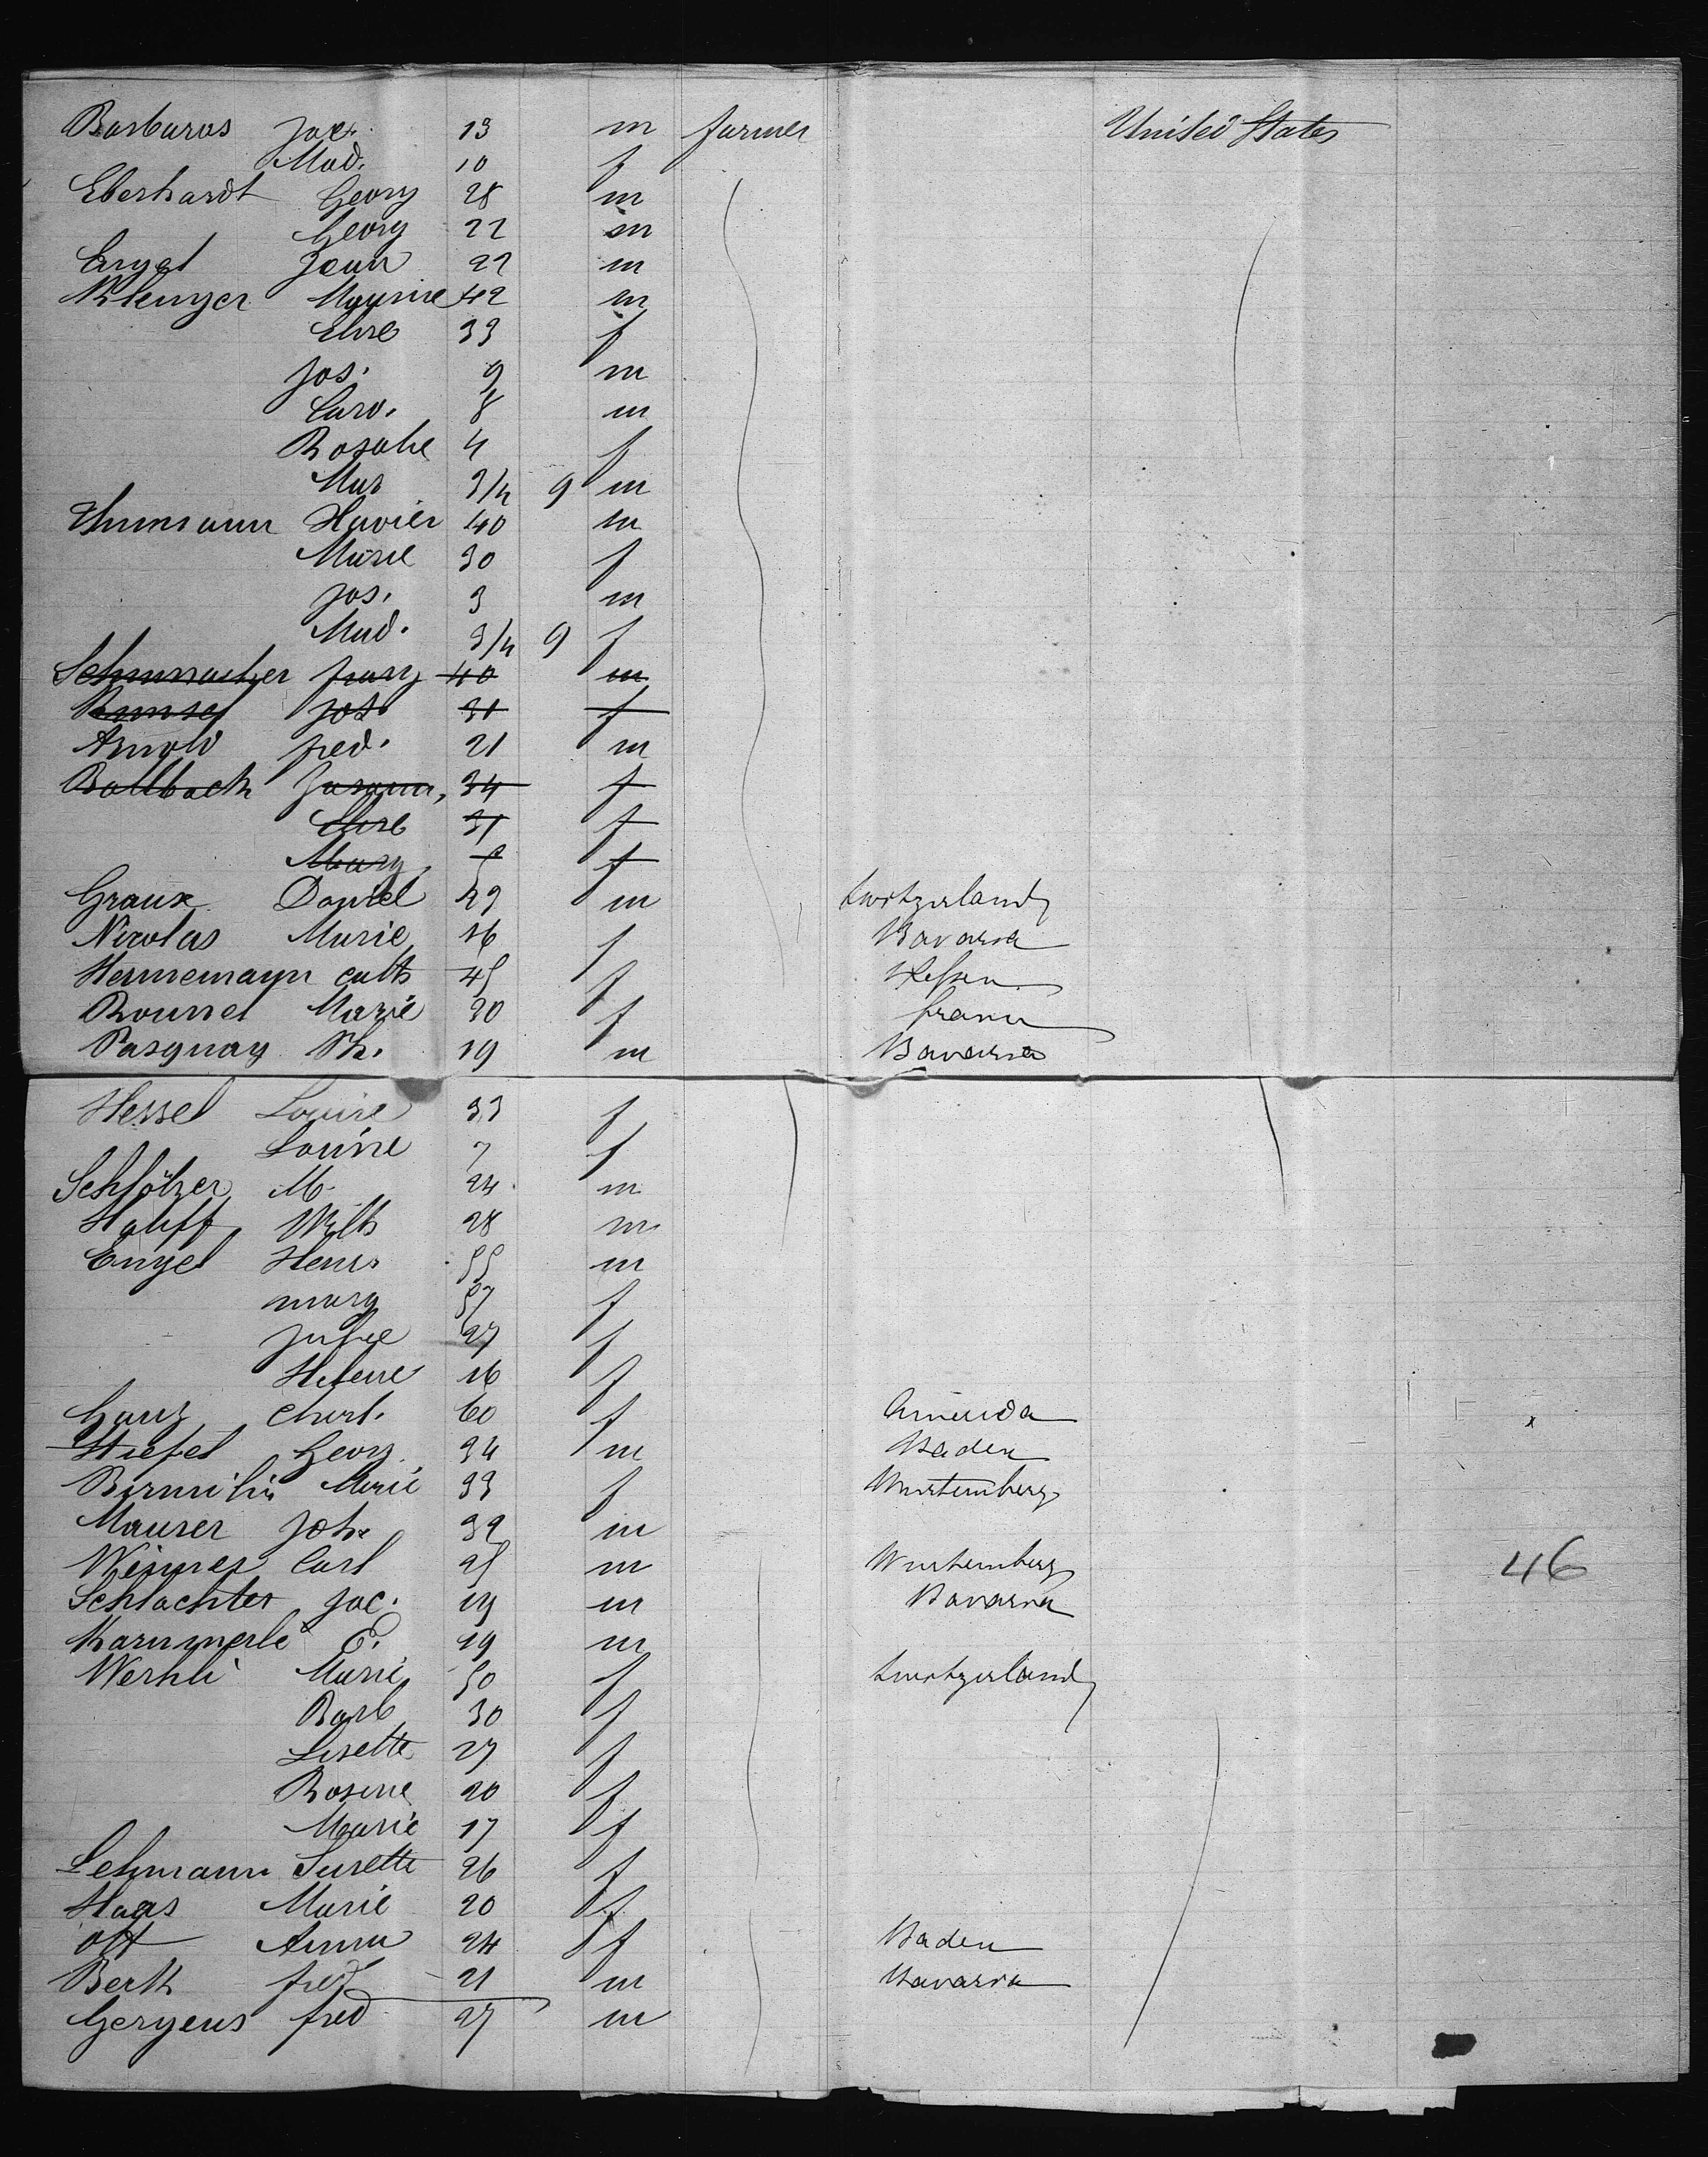 Barbaras Jac. 13 m farmer United States
Mad. 10 f
Eberhardt Georg 28 m
Georg 22 m
Engel Jean 22 m
Klenger 42 m
Elise 33 f
Jos. 9 m
Caro. 8 m
Rosalie 4 f
Max 3/4 9 m
Xavier 40 m
Marie 30 f
Jos. 3 m
Mad. 3/4 9 f
Schumacher Franz 40 m
Jos. 31 f
Arnold fred. 21 m
Bollbach Susann, 34 f
Elise 31 f
Mary f
Graux Daniel 49 m Switzerland
Nicolas Marie 16 f Bavaria
Hennemayn Cath 45 f Hessen
Marie 30 f France
Pasquay Ph. 19 m Bavaria
Hessel Louise 33 f
Louise 7 f
Schlötzer M. 24 m
Wilh 28 m
Engel Henri 55 m
marg 57 f
Julie 27 f
Helene 16 f
Ganz Charl. 60 f America
Stiefel Georg 34 m Baden
Marie 33 f Wurtemberg
Mauser Joh. 32 m
Weimer Carl 25 m Wurtemberg 46
Schlachter Jac. 19 m Bavaria
Kammerle E. 19 m
Werhli Marie 50 f Switzerland
Barb 30 f
Lisette 27 f
Rosine 20 f
Marie 17 f
Lehmann Susette 26 f
Haas Marie 20 f
Ott Anna 24 f Baden
Berth fred 21 m Bavaria
Gergens fred 27 m